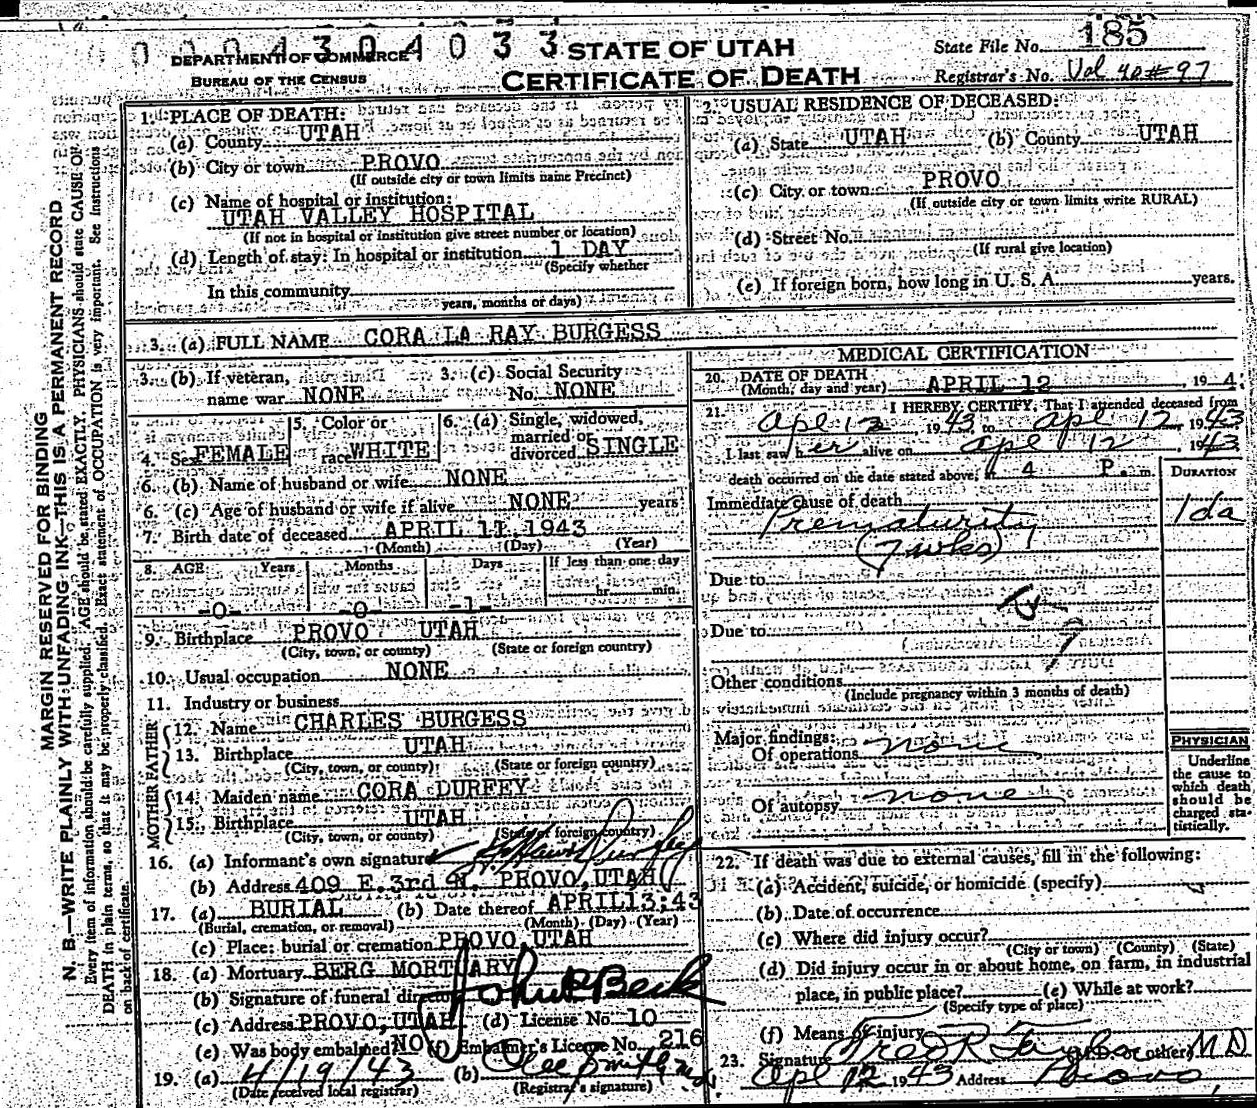 0004304033
DEPARTMENT OF COMMERCE
BUREAU OF THE CENSUS
STATE OF UTAH
CERTIFICATE OF DEATH
State File No. 185
Registrar's No. Vol 40 # 97
MARGIN RESERVED FOR BINDING
N. B.—WRITE PLAINLY WITH UNFADING INK—THIS IS A PERMANENT RECORD
Every item of information should be carefully supplied. AGE should be stated EXACTLY. PHYSICIANS should state CAUSE OF
DEATH in plain terms, so that it may be properly classified. Exact statement of OCCUPATION is very important. See instructions
on back of certificate.
1. PLACE OF DEATH:
(a) County UTAH
(b) City or town PROVO
(If outside city or town limits name Precinct)
(c) Name of hospital or institution:
UTAH VALLEY HOSPITAL
(If not in hospital or institution give street number or location)
(d) Length of stay: In hospital or institution 1 DAY
(Specify whether
In this community
years, months or days)
2. USUAL RESIDENCE OF DECEASED:
(a) State UTAH (b) County UTAH
(c) City or town PROVO
(If outside city or town limits write RURAL)
(d) Street No.
(If rural give location)
(e) If foreign born, how long in U. S. A. years.
3. (a) FULL NAME CORA LA RAY BURGESS
3. (b) If veteran, name war NONE
3. (c) Social Security No. NONE
4. Sex FEMALE
5. Color or race WHITE
6. (a) Single, widowed, married or divorced SINGLE
6. (b) Name of husband or wife NONE
6. (c) Age of husband or wife if alive NONE years
7. Birth date of deceased APRIL 11, 1943
(Month) (Day) (Year)
8. AGE: Years Months Days If less than one day
-0- -0- -1- hr. min.
9. Birthplace PROVO UTAH
(City, town, or county) (State or foreign country)
10. Usual occupation NONE
11. Industry or business
FATHER
12. Name CHARLES BURGESS
13. Birthplace UTAH
(City, town, or county) (State or foreign country)
MOTHER
14. Maiden name CORA DURFEY
15. Birthplace UTAH
(City, town, or county) (State or foreign country)
16. (a) Informant's own signature Durfey
(b) Address 409 E. 3rd N. PROVO, UTAH
17. (a) BURIAL (b) Date thereof APRIL 13, 43
(Burial, cremation, or removal) (Month) (Day) (Year)
(c) Place: burial or cremation PROVO, UTAH
18. (a) Mortuary BERG MORTUARY
(b) Signature of funeral director John P Beck
(c) Address PROVO, UTAH (d) License No. 10
(e) Was body embalmed NO (f) Embalmer's License No. 216
19. (a) 4/19/43 (b) Smith
(Date received local registrar) (Registrar's signature)
MEDICAL CERTIFICATION
20. DATE OF DEATH
(Month, day and year) APRIL 12, 194
21. I HEREBY CERTIFY, That I attended deceased from
Apl 12 1943 to Apl 12, 1943
I last saw her alive on Apl 12, 1943
death occurred on the date stated above, at 4 P. m.
DURATION
Immediate cause of death
Prematurity 1 da
(7 wks)
Due to
Due to
Other conditions
(Include pregnancy within 3 months of death)
Major findings:
Of operations none
Of autopsy none
PHYSICIAN
Underline
the cause to
which death
should be
charged sta-
tistically.
22. If death was due to external causes, fill in the following:
(a) Accident, suicide, or homicide (specify)
(b) Date of occurrence
(c) Where did injury occur?
(City or town) (County) (State)
(d) Did injury occur in or about home, on farm, in industrial
place, in public place? (e) While at work?
(Specify type of place)
(f) Means of injury
23. Signature Fred R Taylor (M.D. or other) M.D
Apl 12 1943 Address Provo